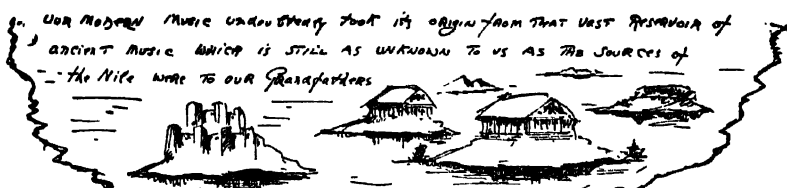 our MODERN Music undoubtedly took its ORIGIN from THAT VAST RESERVOIR of
ancient MUSIC WHICH is STILL AS UNKNOWN TO US AS THE SOURCES of
the Nile WERE TO OUR Grandfathers